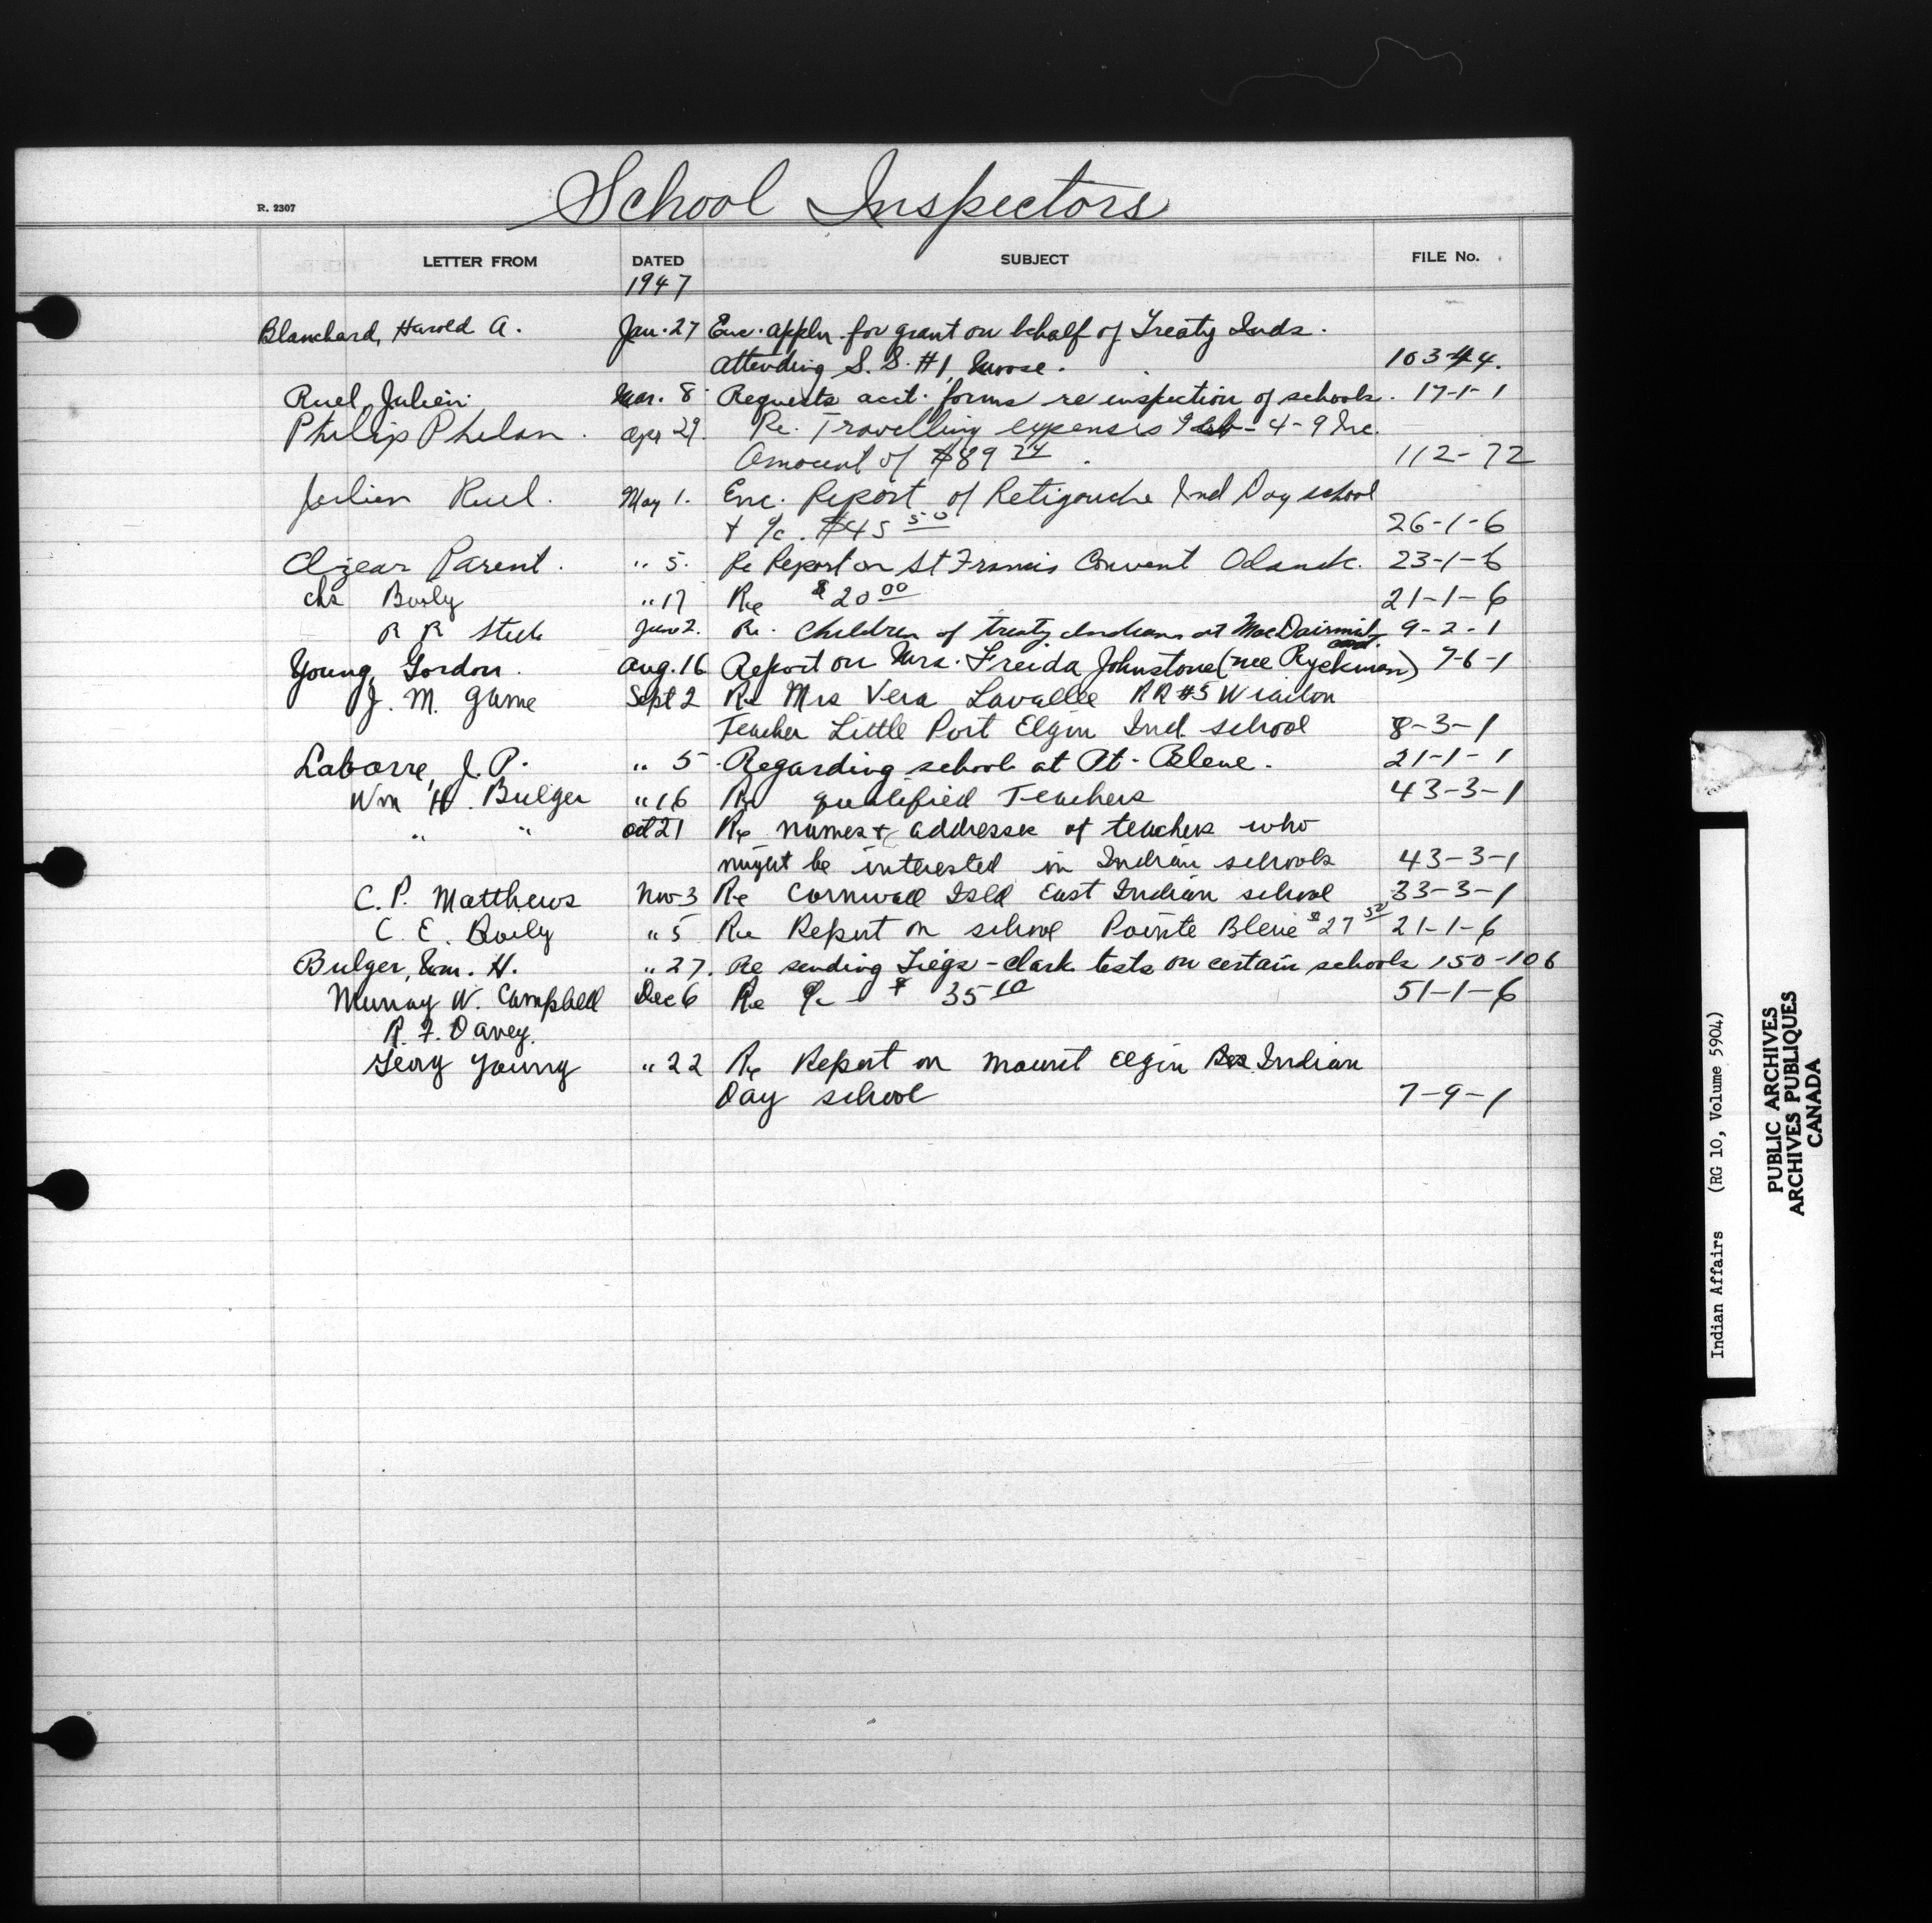 School Inspectors
R. 2307
LETTER FROM DATED SUBJECT FILE No.
1947
Blanchard, Harold A. Jan. 27 Enc. appln. for grant on behalf of Treaty Inds.
attending S. S. #1, Morse. 103-44.
Ruel, Julien. Mar. 8 Requests acct. forms re inspection of schools. 17-1-1
Philip Phelan. Apr 29. Re. Travelling expenses Feb - 4-9 Inc.
Amount of $89 74. 112-72
Julien Ruel. May 1. Enc. Report of Retigouche Ind Day school
+ a/c. $45 50 26-1-6
Elzear Parent. " 5. Re Report on St Francis Convent Odanak. 23-1-6
Chs Boily " 17 Re $20 00 21-1-6
R R Steele June 2. Re. Children of treaty Indians at MacDairmid 9-2-1
Young, Gordon. Aug. 16 Report on Mrs. Freida Johnstone (nee Ryckman) 7-6-1
J. M. Game Sept 2 Re Mrs Vera Lavallee RR #5 Wiarton
Teacher Little Port Elgin Ind. school 8-3-1
Labarre, J. P. " 5 Regarding school at Pt. Bleue. 21-1-1
Wm H. Bulger " 16 Re qualified Teachers 43-3-1
" " Oct 21 Re names + addresses of teachers who
might be interested in Indian schools 43-3-1
C. P. Matthews Nov 3 Re Cornwall Isld East Indian school 33-3-1
C. E. Boily " 5 Re Report on school Pointe Bleue $27 50 21-1-6
Bulger, Wm. H. " 27. Re sending Tiegs - Clark tests on certain schools 150-106
Murray W. Campbell Dec 6 Re a/c - $ 35 10 51-1-6
R. F. Davey.
Geory Young " 22 Re Report on Mount Elgin Indian
Day school 7-9-1
Indian Affairs (RG 10, Volume 5904)
PUBLIC ARCHIVES
ARCHIVES PUBLIQUES
CANADA